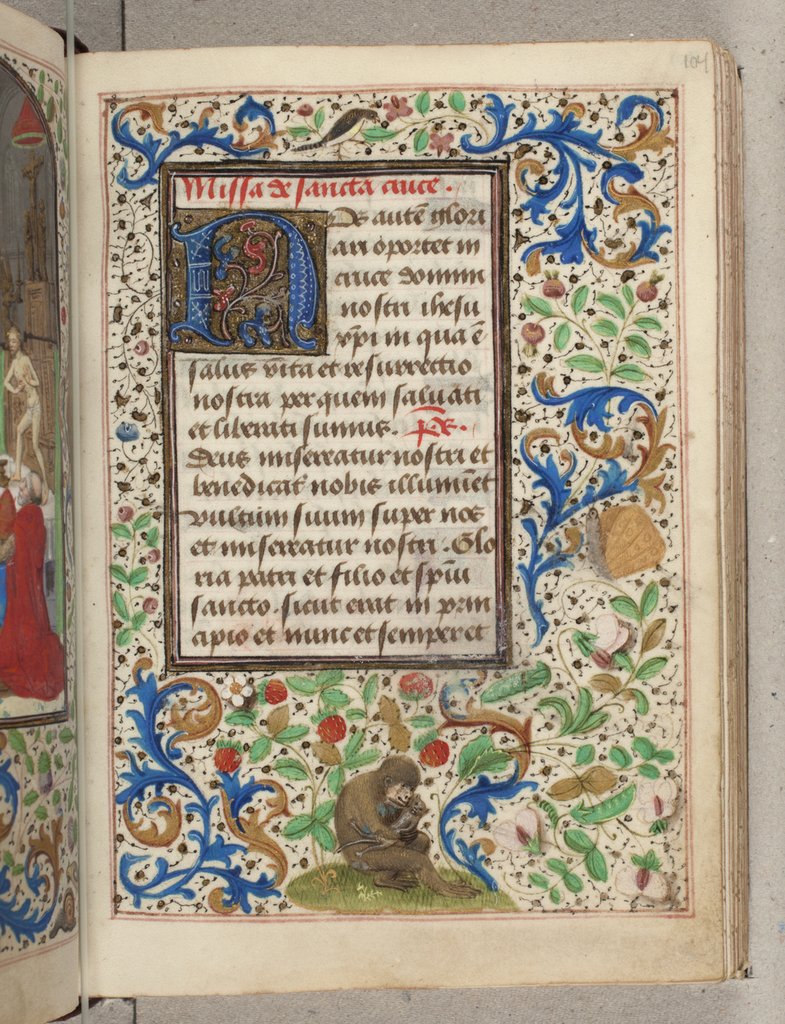 104
Missa de sancta cruce.
Nos autē glori
ari oportet in
cruce domini
nostri ihesu
xp̄i in qua ē
salus vita et resurrectio
nostra per quem saluati
et liberati sumus. p̄s.
Deus misereatur nostri et
benedicat nobis illuminet
vultum suum super nos
et misereatur nostri. Glo
ria patri et filio et sp̄ui
sancto. sicut erat in prin
cipio et nunc et semper et